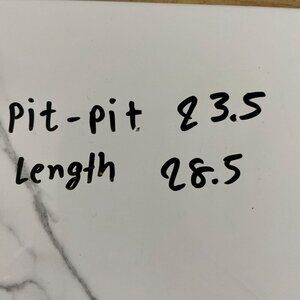 Pit-pit 23.5
Length 28.5